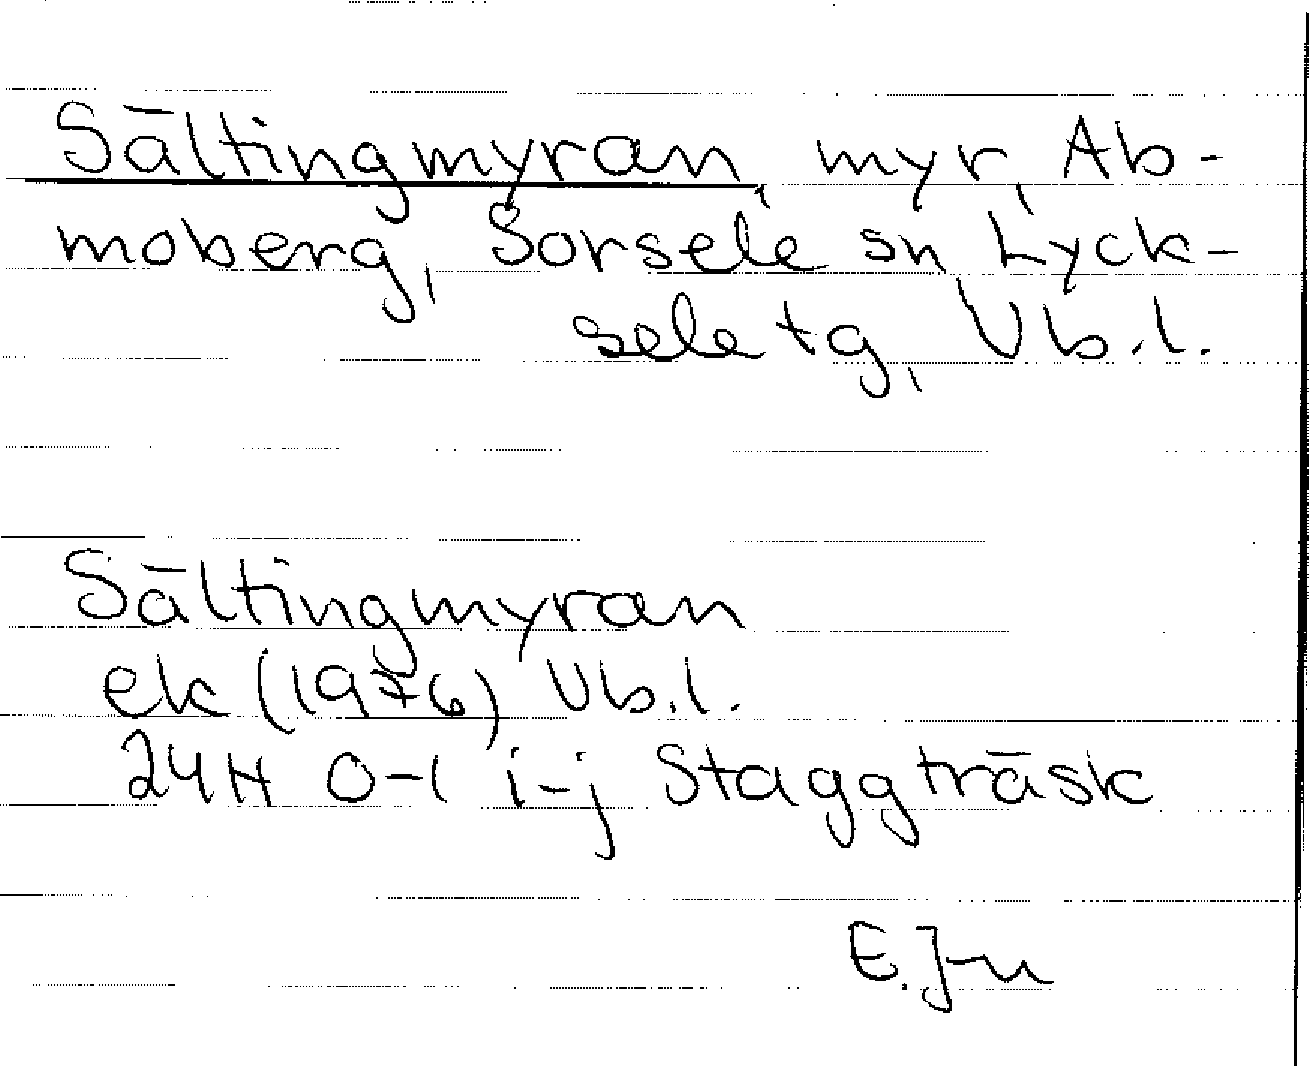 Sältingmyran, myr, Ab-
moberg, Sorsele sn, Lyck-
sele tg, Vb.l.
Sältingmyran
ek (1976) Vb.l.
24H 0-1 i-j Staggträsk